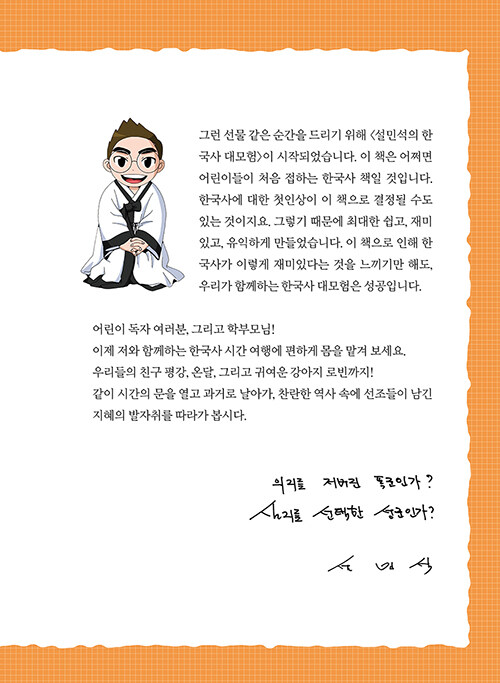 그런 선물 같은 순간을 드리기 위해 〈설민석의 한
국사 대모험〉이 시작되었습니다. 이 책은 어쩌면
어린이들이 처음 접하는 한국사 책일 것입니다.
한국사에 대한 첫인상이 이 책으로 결정될 수도
있는 것이지요. 그렇기 때문에 최대한 쉽고, 재미
있고, 유익하게 만들었습니다. 이 책으로 인해 한
국사가 이렇게 재미있다는 것을 느끼기만 해도,
우리가 함께하는 한국사 대모험은 성공입니다.
어린이 독자 여러분, 그리고 학부모님!
이제 저와 함께하는 한국사 시간 여행에 편하게 몸을 맡겨 보세요.
우리들의 친구 평강, 온달, 그리고 귀여운 강아지 로빈까지!
같이 시간의 문을 열고 과거로 날아가, 찬란한 역사 속에 선조들이 남긴
지혜의 발자취를 따라가 봅시다.
의리를 저버린 폭군인가?
실리를 선택한 성군인가?
설 민 석